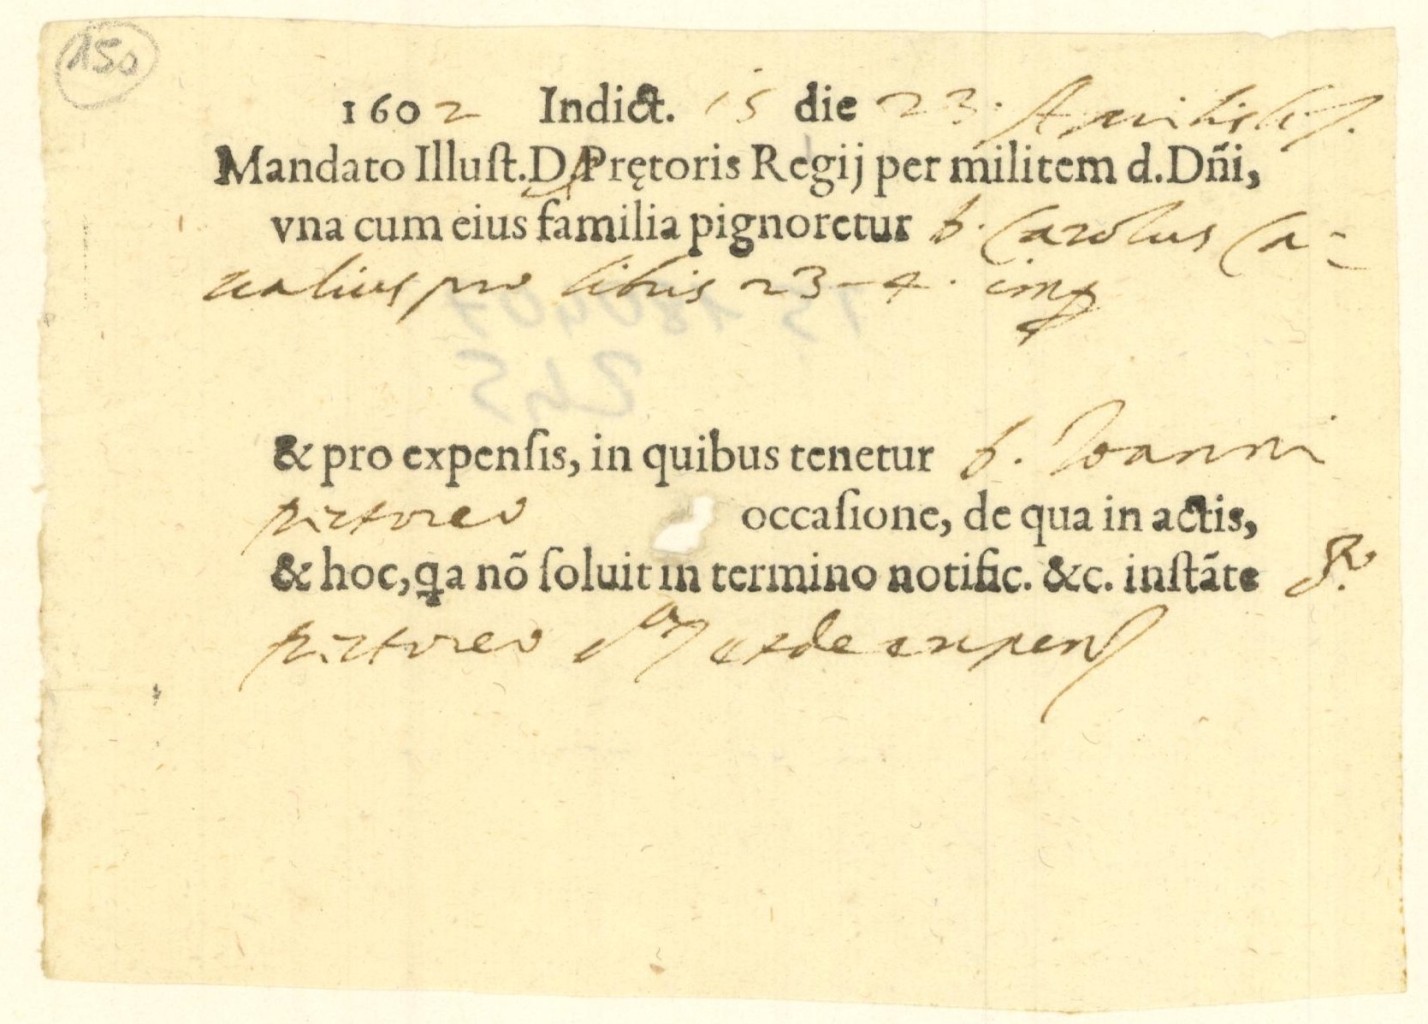 150
1602 Indict. 15 die 23. Aprilis
Mandato Illuſt.D. Prętoris Regij per militem d.Dñi,
vna cum eius familia pignoretur b. Carolus Ca-
ualius pro libris 23 - 4. imp
& pro expenſis, in quibus tenetur b. Ioanni
pictoreo occaſione, de qua in actis,
& hoc, qa nõ ſoluit in termino notific. &c. inſtãte
pictoreo et de expens